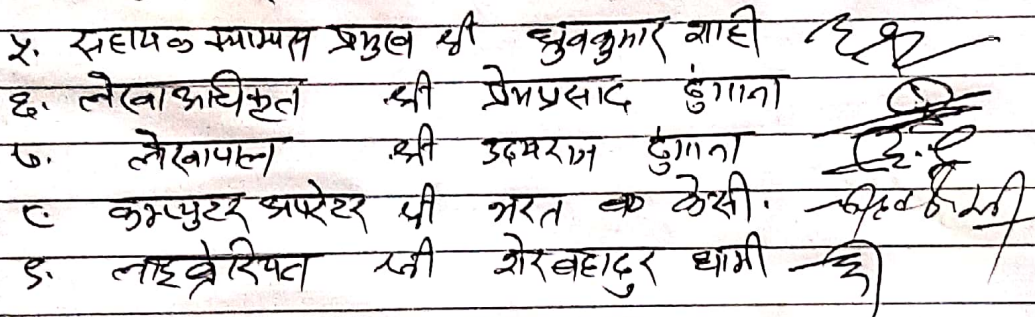 ५. सहायक क्याम्पस प्रमुख श्री ध्रुवकुमार शाही
६. लेखा अधिकृत श्री प्रेमप्रसाद ढुंगाना
७. लेखापाल श्री उदयराज ढुंगाना
८. कम्प्युटर अपरेटर श्री भरत के.सी.
९. लाइब्रेरियन श्री शेरबहादुर धामी